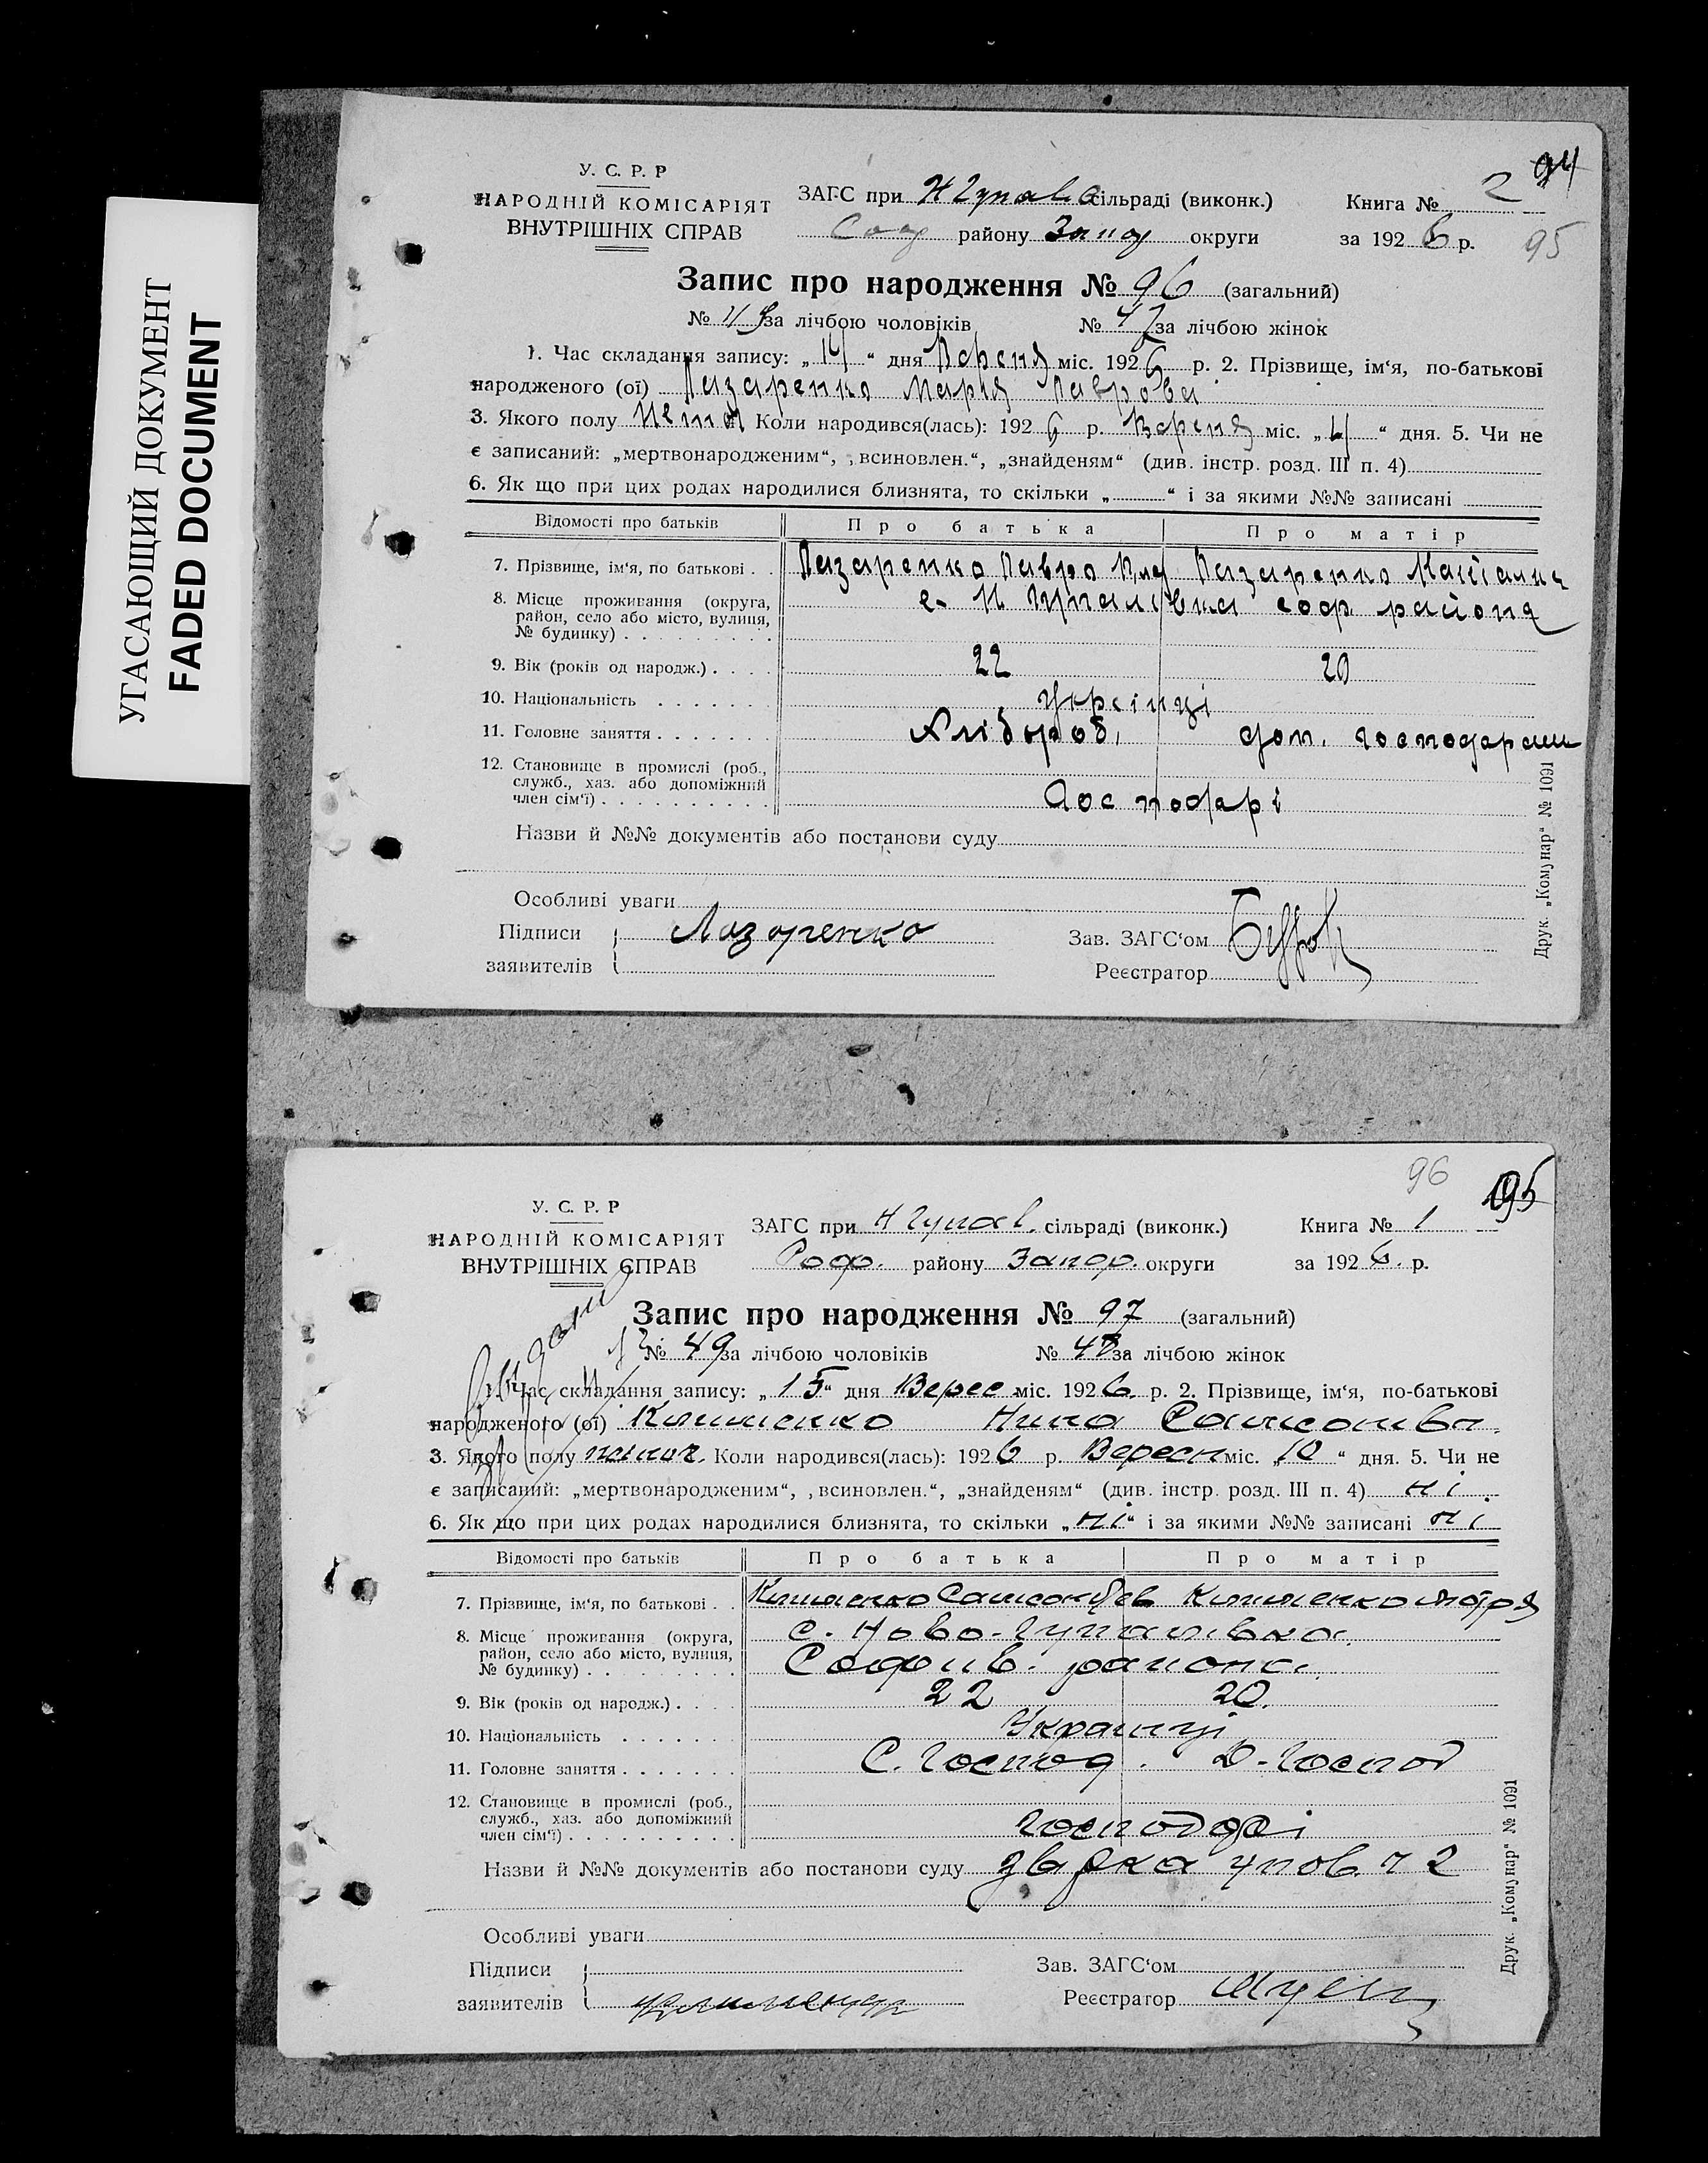 УГАСАЮЩИЙ ДОКУМЕНТ
FADED DOCUMENT
94
95
У. С. Р. Р
НАРОДНІЙ КОМІСАРІЯТ
ВНУТРІШНІХ СПРАВ
ЗАГС при сільраді (виконк.)
Соф району Запоо округи
Книга № 2
за 1926 р.
Запис про народження № 96 (загальний)
№ 49 за лічбою чоловіків № 47 за лічбою жінок
1. Час складання запису: „14“ дня Вереня міс. 1926 р. 2. Прізвище, ім‘я, по-батькові
народженого (ої) Лазаренко Марія Паврова
3. Якого полу Коли народився(лась): 1926 р. Вереня міс. „4“ дня. 5. Чи не
є записаний: „мертвонародженим“, „всиновлен.“, „знайденям“ (див. інстр. розд. III п. 4)
6. Як що при цих родах народилися близнята, то скільки „ “ і за якими №№ записані
Відомості про батьків Про батька Про матір
7. Прізвище, ім‘я, по батькові . . Лазаренко Лавро Лазаренко
8. Місце проживання (округа, район, село або місто, вулиця, № будинку) . . . . . . . . . с. Н Гупалівка соф. района
9. Вік (років од народж.) . . . . 22 20
10. Національність . . . . . . . Українці
11. Головне заняття . . . . . . . Хлібороб, дом. господараш
12. Становище в промислі (роб., служб., хаз. або допоміжний член сім‘ї) . . . . . . . . . . Господарі
Назви й №№ документів або постанови суду
Особливі уваги
Підписи
заявителів
Лазоренко
Зав. ЗАГС‘ом
Реєстратор
Друк. „Комунар“ № 1091
96
95
У. С. Р. Р
НАРОДНІЙ КОМІСАРІЯТ
ВНУТРІШНІХ СПРАВ
ЗАГС при Н Гупал. сільраді (виконк.)
Соф. району Запор. округи
Книга № 1
за 1926. р.
Запис про народження № 97 (загальний)
№ 49 за лічбою чоловіків № 48 за лічбою жінок
1. Час складання запису: „15“ дня Верес міс. 1926. р. 2. Прізвище, ім‘я, по-батькові
народженого (ої) Клименко Нина Самсоновн.
3. Якого полу жіноч. Коли народився(лась): 1926 р. Вересн міс. „10“ дня. 5. Чи не
є записаний: „мертвонародженим“, „всиновлен.“, „знайденям“ (див. інстр. розд. III п. 4) ні.
6. Як що при цих родах народилися близнята, то скільки „ні“ і за якими №№ записані ні
Відомості про батьків Про батька Про матір
7. Прізвище, ім‘я, по батькові . . Клименко Самсон Клименко
8. Місце проживання (округа, район, село або місто, вулиця, № будинку) . . . . . . . . . с. Ново-Гупалівка. Софиів. района.
9. Вік (років од народж.) . . . . 22 20.
10. Національність . . . . . . . Українці
11. Головне заняття . . . . . . . С. Господ. Д-Господ
12. Становище в промислі (роб., служб., хаз. або допоміжний член сім‘ї) . . . . . . . . . . господарі
Назви й №№ документів або постанови суду
Особливі уваги
Підписи
заявителів
Зав. ЗАГС‘ом
Реєстратор
Друк. „Комунар“ № 1091